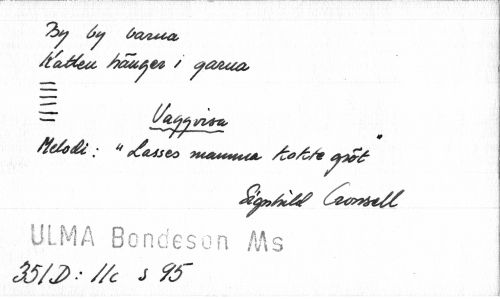 By by barna
Katten hänger i garna
Vaggvisa
Melodi: "Lasses mamma kokte gröt"
Sigrhild Cronsell
ULMA Bondeson Ms
351D: 11c s 95